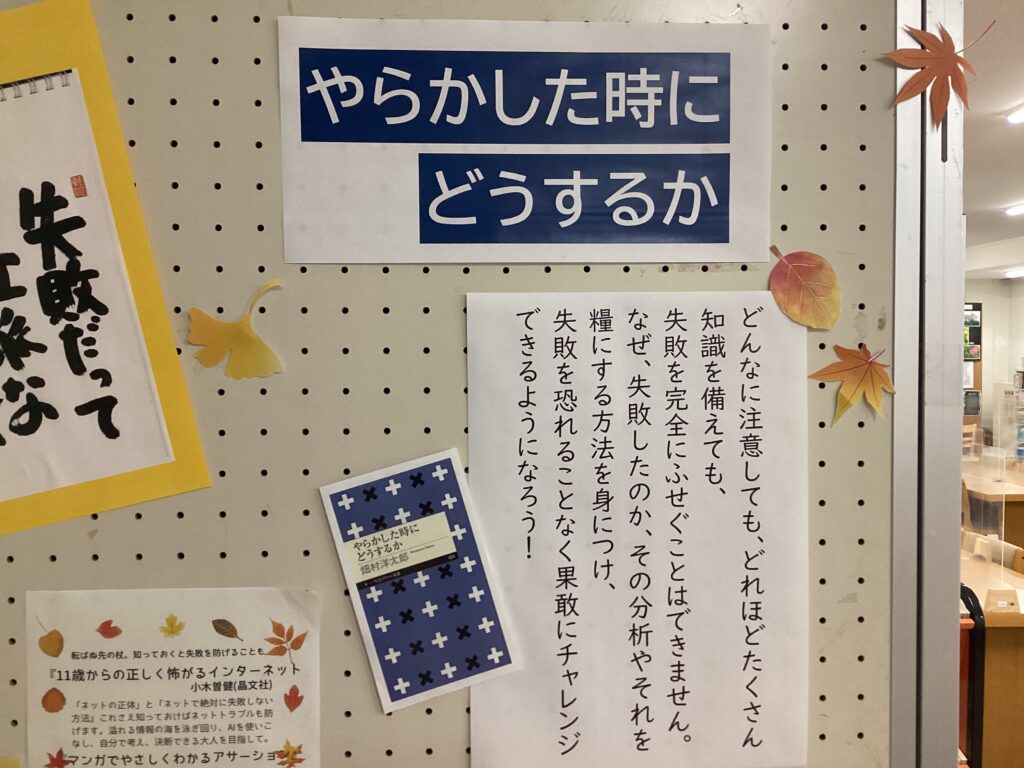 やらかした時に
どうするか
どんなに注意しても、どれほどたくさん
知識を備えても、
失敗を完全にふせぐことはできません。
なぜ、失敗したのか、その分析やそれを
糧にする方法を身につけ、
失敗を恐れることなく果敢にチャレンジ
できるようになろう！
失敗だって
やらかした時に
どうするか
畑村洋太郎
転ばぬ先の杖。知っておくと失敗を防げることも
『11歳からの正しく怖がるインターネット
小木曽健(晶文社)
「ネットの正体」と「ネットで絶対に失敗しない
方法』これさえ知っておけばネットトラブルも防
げます。溢れる情報の海を泳ぎ回り、AIを使いこ
なし、自分で考え、決断できる大人を目指して。
マンガでやさしくわかるアサーション